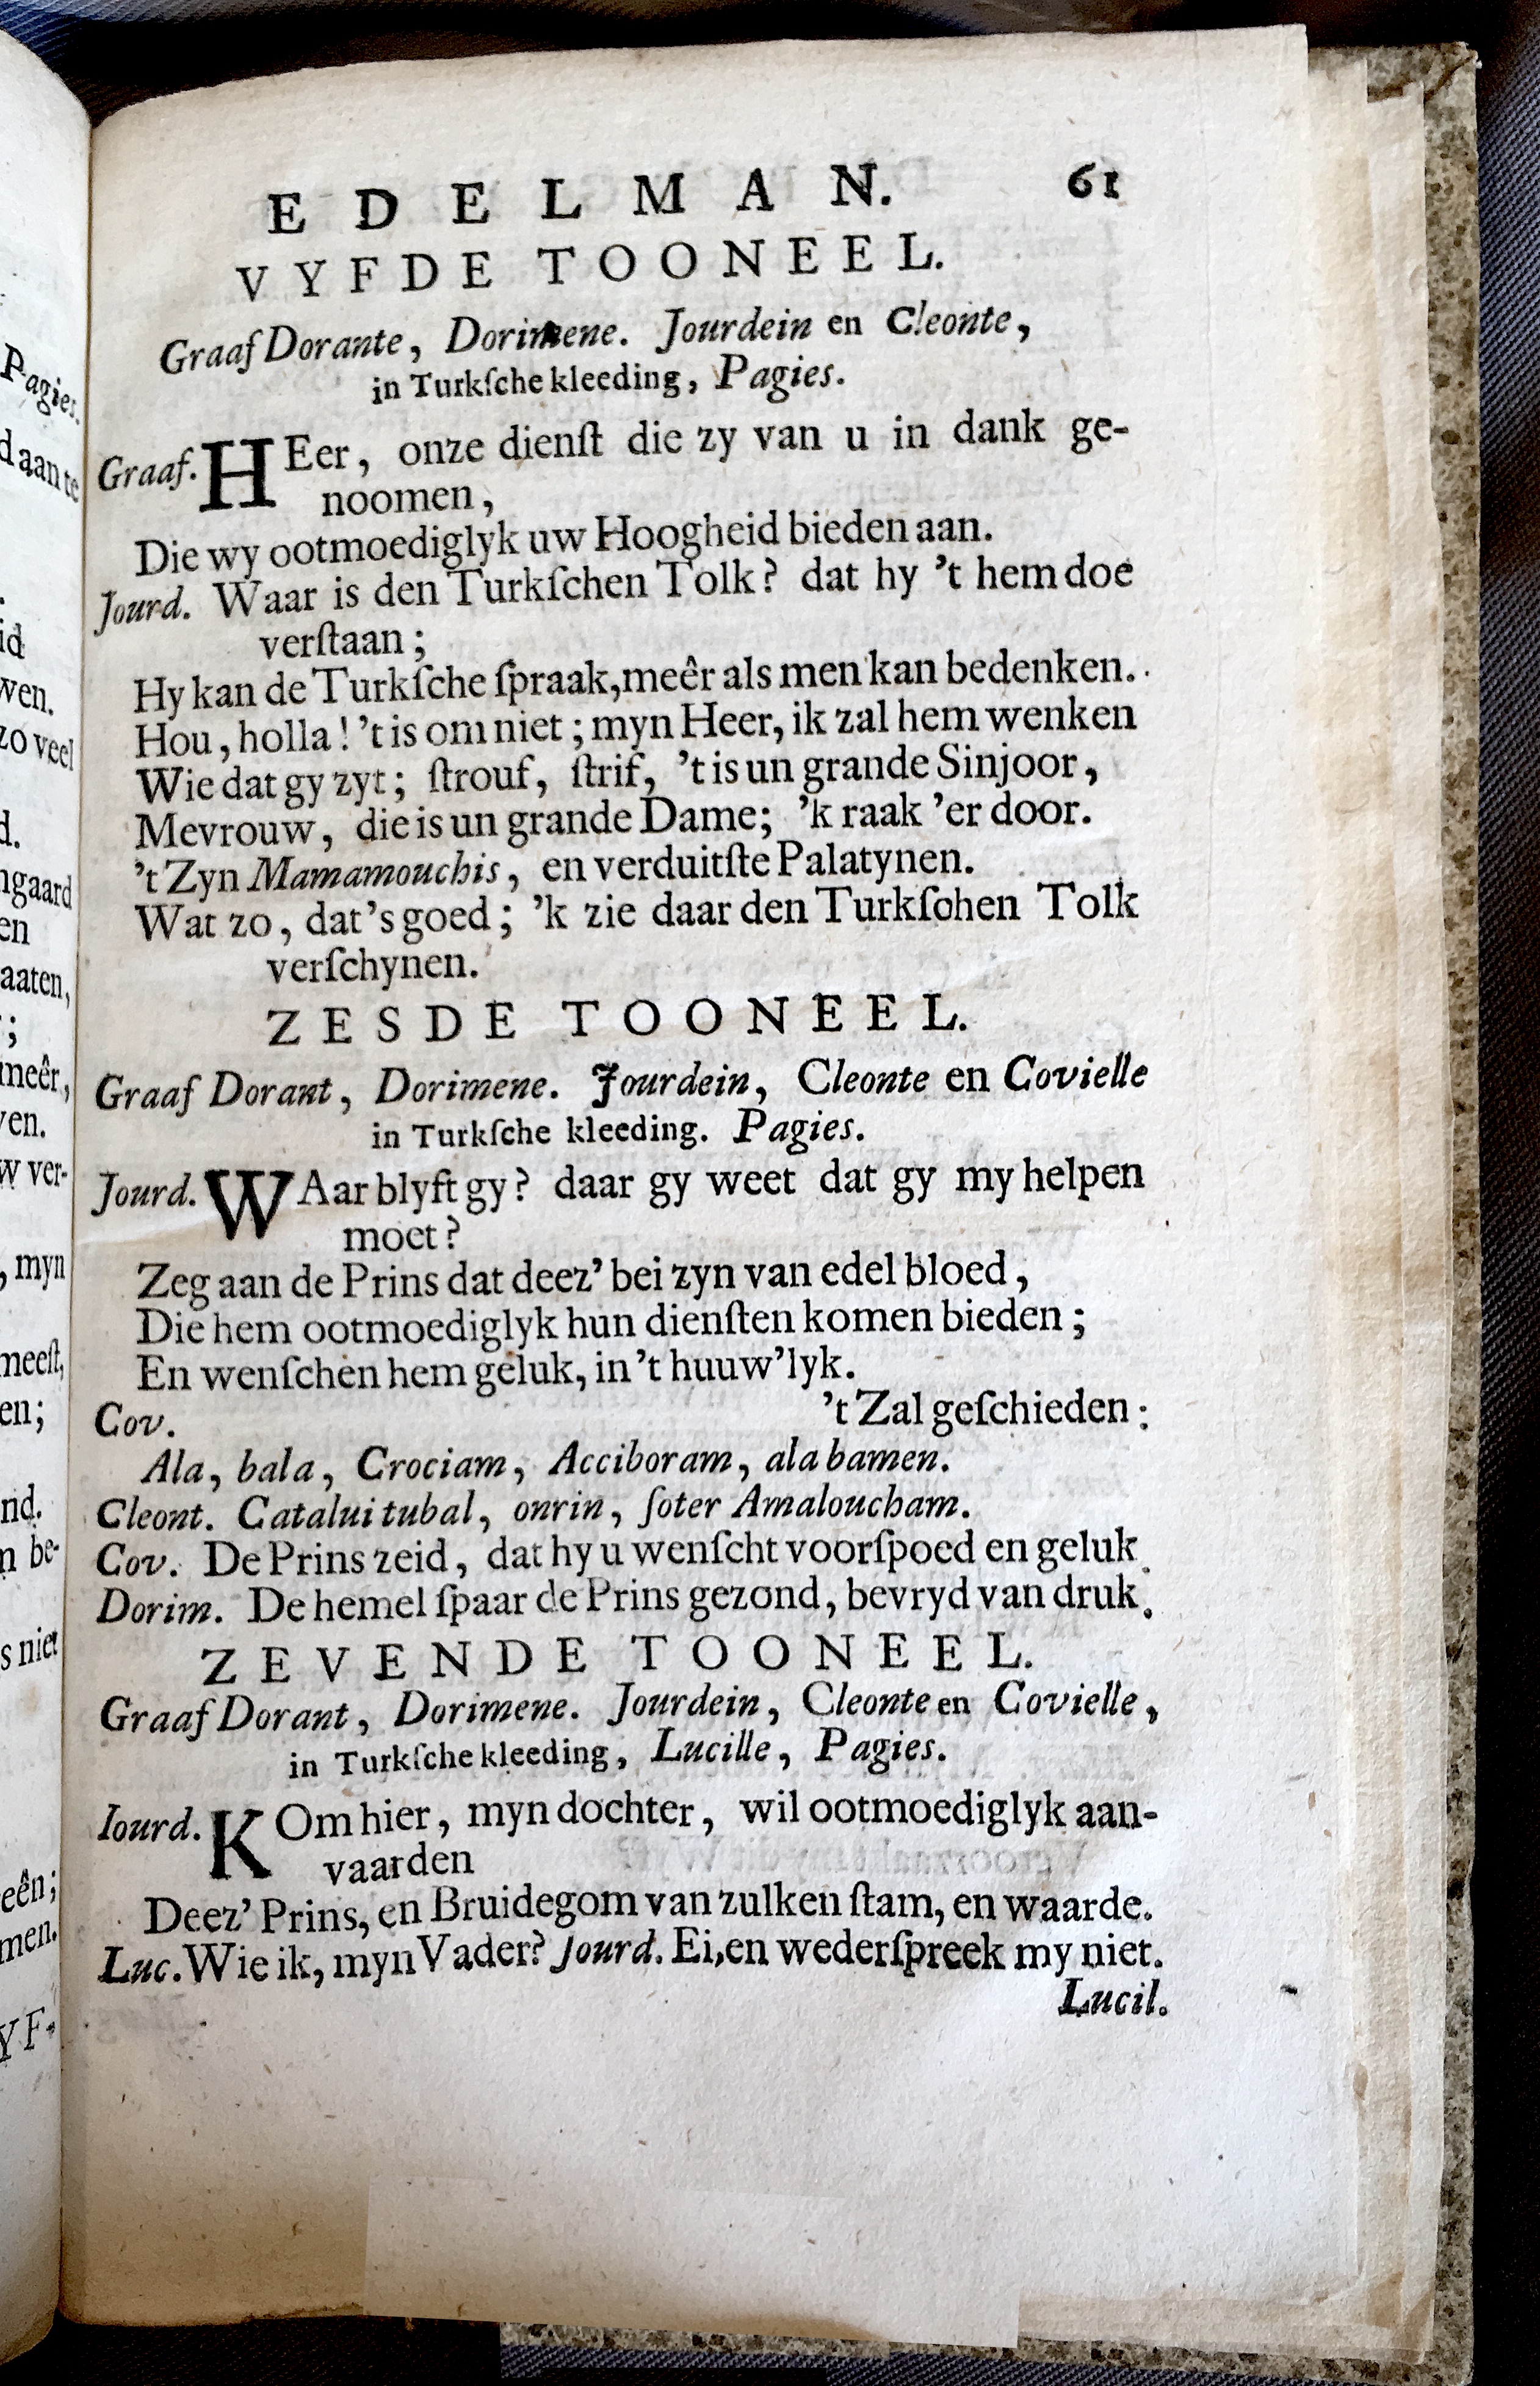 EDELMAN. 61
VYFDE TOONEEL.
Graaf Dorante, Dorimene. Jourdein en Cleonte,
in Turkſche kleeding, Pagies.
Graaf. HEer, onze dienſt die zy van u in dank ge-
noomen,
Die wy ootmoediglyk uw Hoogheid bieden aan.
Jourd. Waar is den Turkſchen Tolk? dat hy 't hem doe
verſtaan;
Hy kan de Turkſche ſpraak, meêr als men kan bedenken.
Hou, holla! 't is om niet; myn Heer, ik zal hem wenken
Wie dat gy zyt; ſtrouf, ſtrif, 't is un grande Sinjoor,
Mevrouw, die is un grande Dame; 'k raak 'er door.
't Zyn Mamamouchis, en verduitſte Palatynen.
Wat zo, dat's goed; 'k zie daar den Turkſohen Tolk
verſchynen.
ZESDE TOONEEL.
Graaf Dorant, Dorimene. Jourdein, Cleonte en Covielle
in Turkſche kleeding. Pagies.
Jourd. WAar blyft gy? daar gy weet dat gy my helpen
moet?
Zeg aan de Prins dat deez' bei zyn van edel bloed,
Die hem ootmoediglyk hun dienſten komen bieden;
En wenſchen hem geluk, in 't huuw'lyk.
Cov. 't Zal geſchieden:
Ala, bala, Crociam, Acciboram, ala bamen.
Cleont. Catalui tubal, onrin, ſoter Amaloucham.
Cov. De Prins zeid, dat hy u wenſcht voorſpoed en geluk.
Dorim. De hemel ſpaar de Prins gezond, bevryd van druk.
ZEVENDE TOONEEL.
Graaf Dorant, Dorimene. Jourdein, Cleonte en Covielle,
in Turkſche kleeding, Lucille, Pagies.
Iourd. KOm hier, myn dochter, wil ootmoediglyk aan-
vaarden
Deez' Prins, en Bruidegom van zulken ſtam, en waarde.
Luc. Wie ik, myn Vader? Jourd. Ei, en wederſpreek my niet.
Lucil.
Pagies.
d aan te
id
wen.
zo veel
d.
ngaard
en
aaten,
;
meêr,
ven.
w ver-
, myn
meeſt,
en;
nd.
n be-
s niet
eên;
men.
YF-